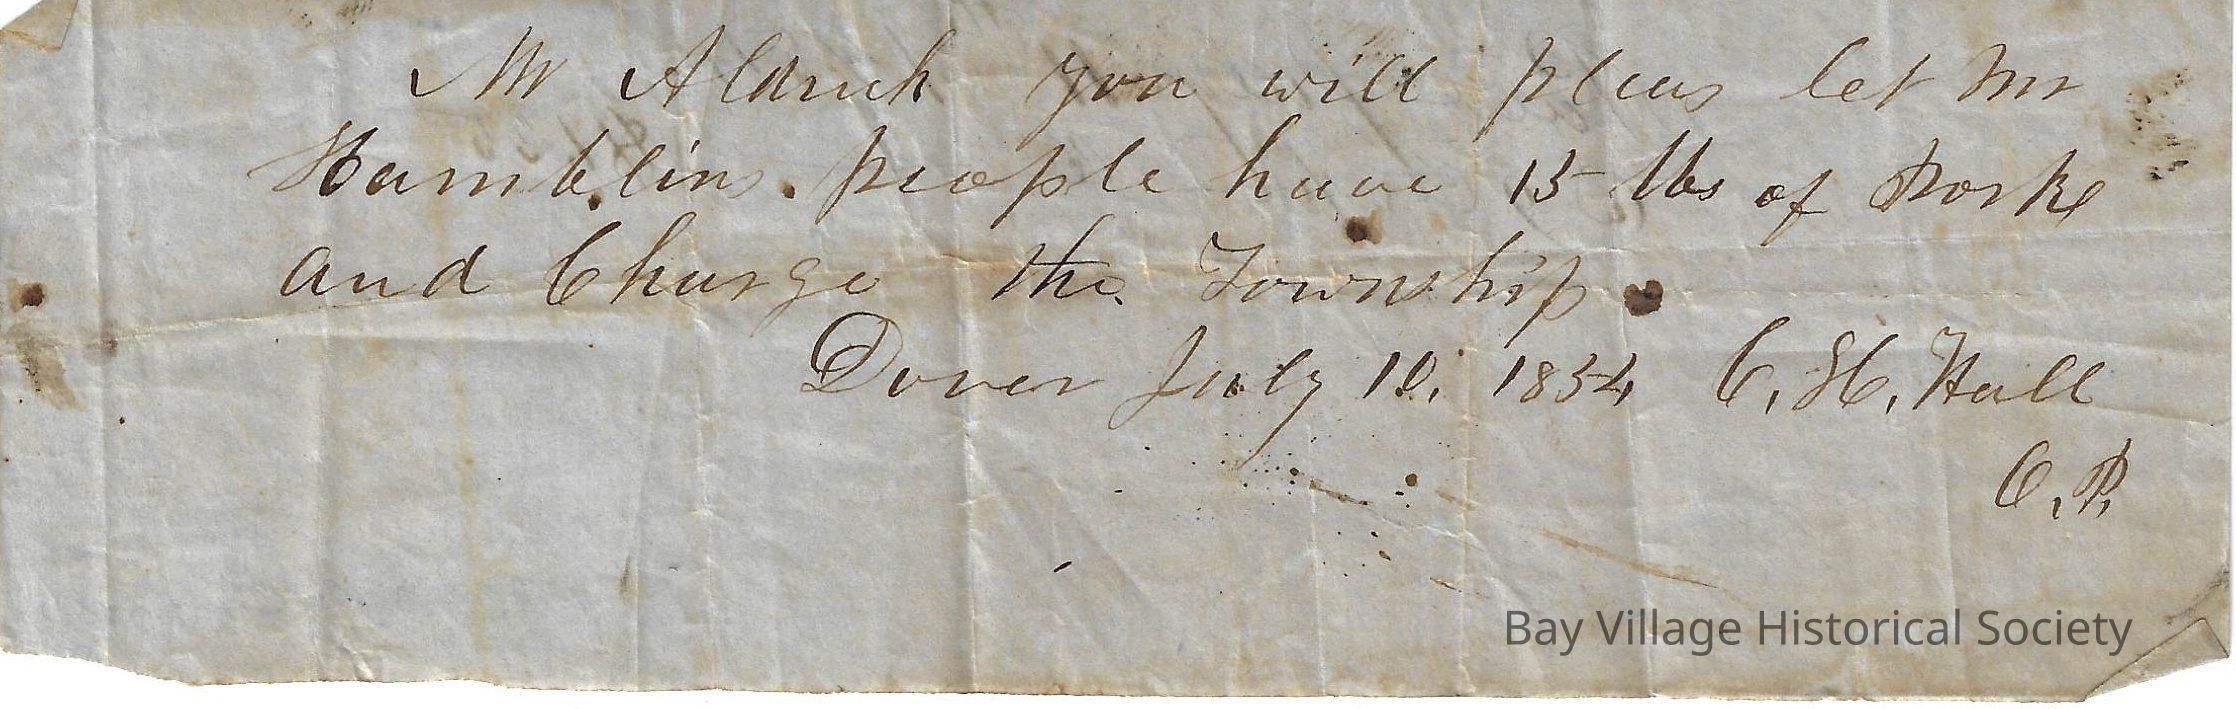 Mr Aldrich you will pleas let Mr
Hamblins people have 15 lbs of Porke
and Charge the Township.
Dover July 10. 1854 C. H. Hall
O. P.
Bay Village Historical Society